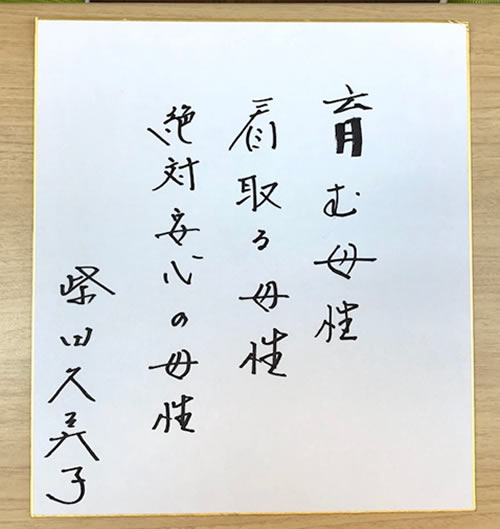 育む母性
看取る母性
絶対安心の母性
柴田久美子